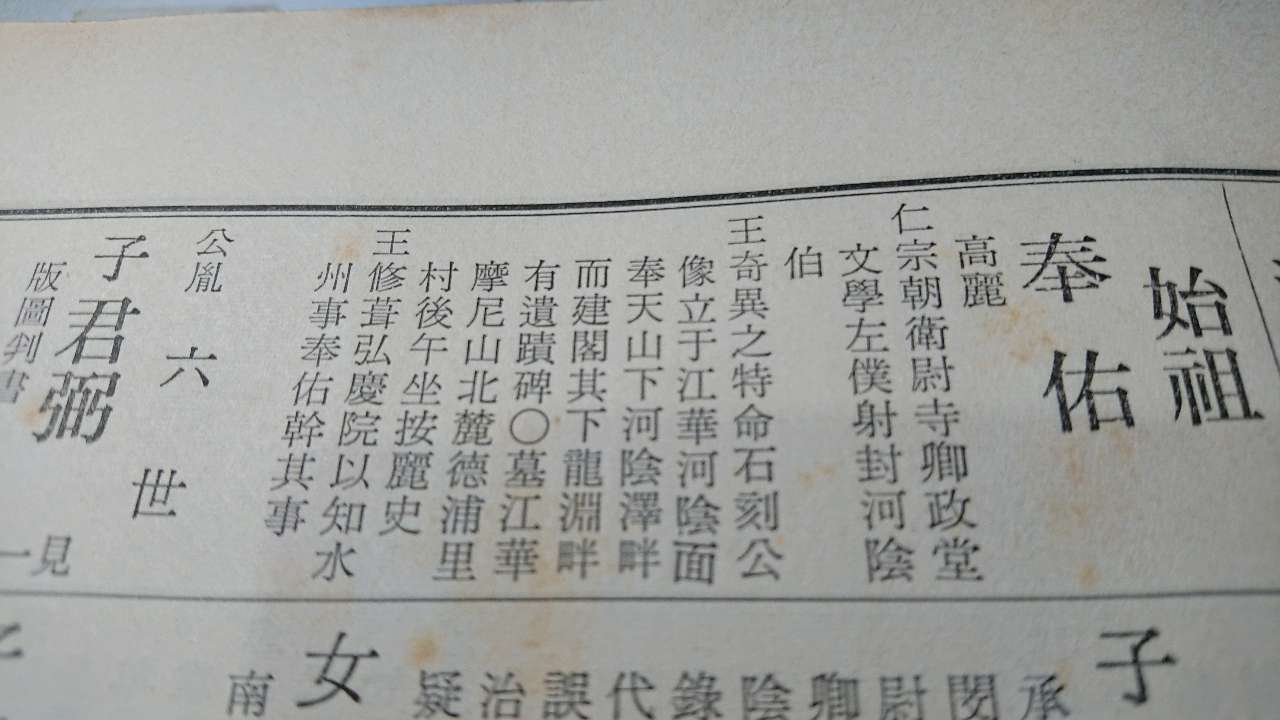 始祖
奉佑
高麗
仁宗朝衛尉寺卿政堂
文學左僕射封河陰
伯
王奇異之特命石刻公
像立于江華河陰面
奉天山下河陰澤畔
而建閣其下龍淵畔
有遺蹟碑〇墓江華
摩尼山北麓德浦里
村後午坐按麗史
王修葺弘慶院以知水
州事奉佑幹其事
公胤
六世
子君弼
版圖判書
見
一
子
承
閔
尉
卿
陰
錄
代
誤
治
疑
女
南